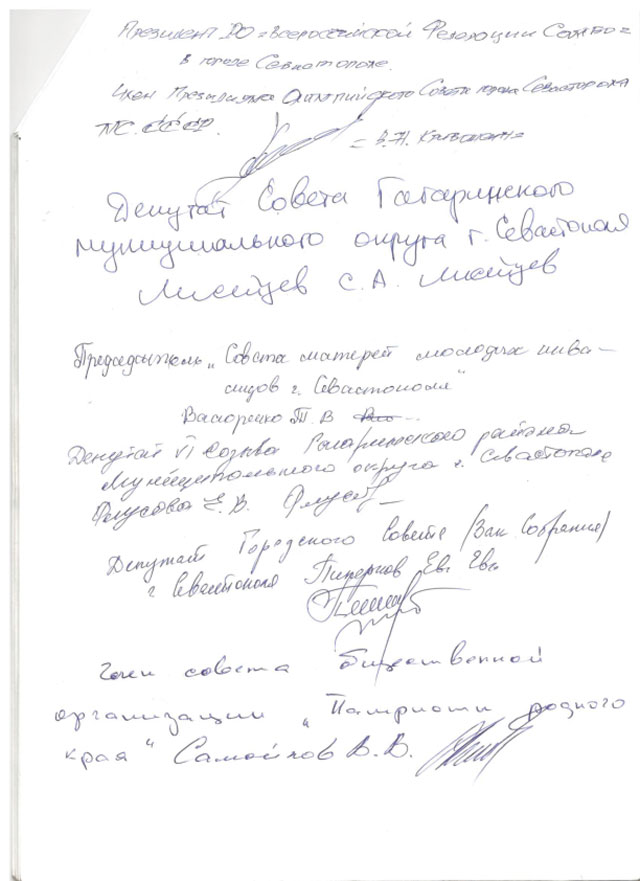 Президент РО "Всероссийской Федерации Самбо"
в городе Севастополе.
Член Президиума Олимпийского Совета города Севастополя
МС СССР.
Депутат Совета Гагаринского
муниципального округа г. Севастополя
С.А.
Председатель „Совета матерей молодых инва-
лидов г. Севастополя"
Васюренко Т. В
Депутат VI Созыва Гагаринского района
Муниципального округа г. Севастополе
Е. В.
Депутат Городского Совета (Зак Собрания)
г Севастополя Пиперков Евг Евг
Член совета общественной
организации „Патриоты родного
края" Самойлов В. В.